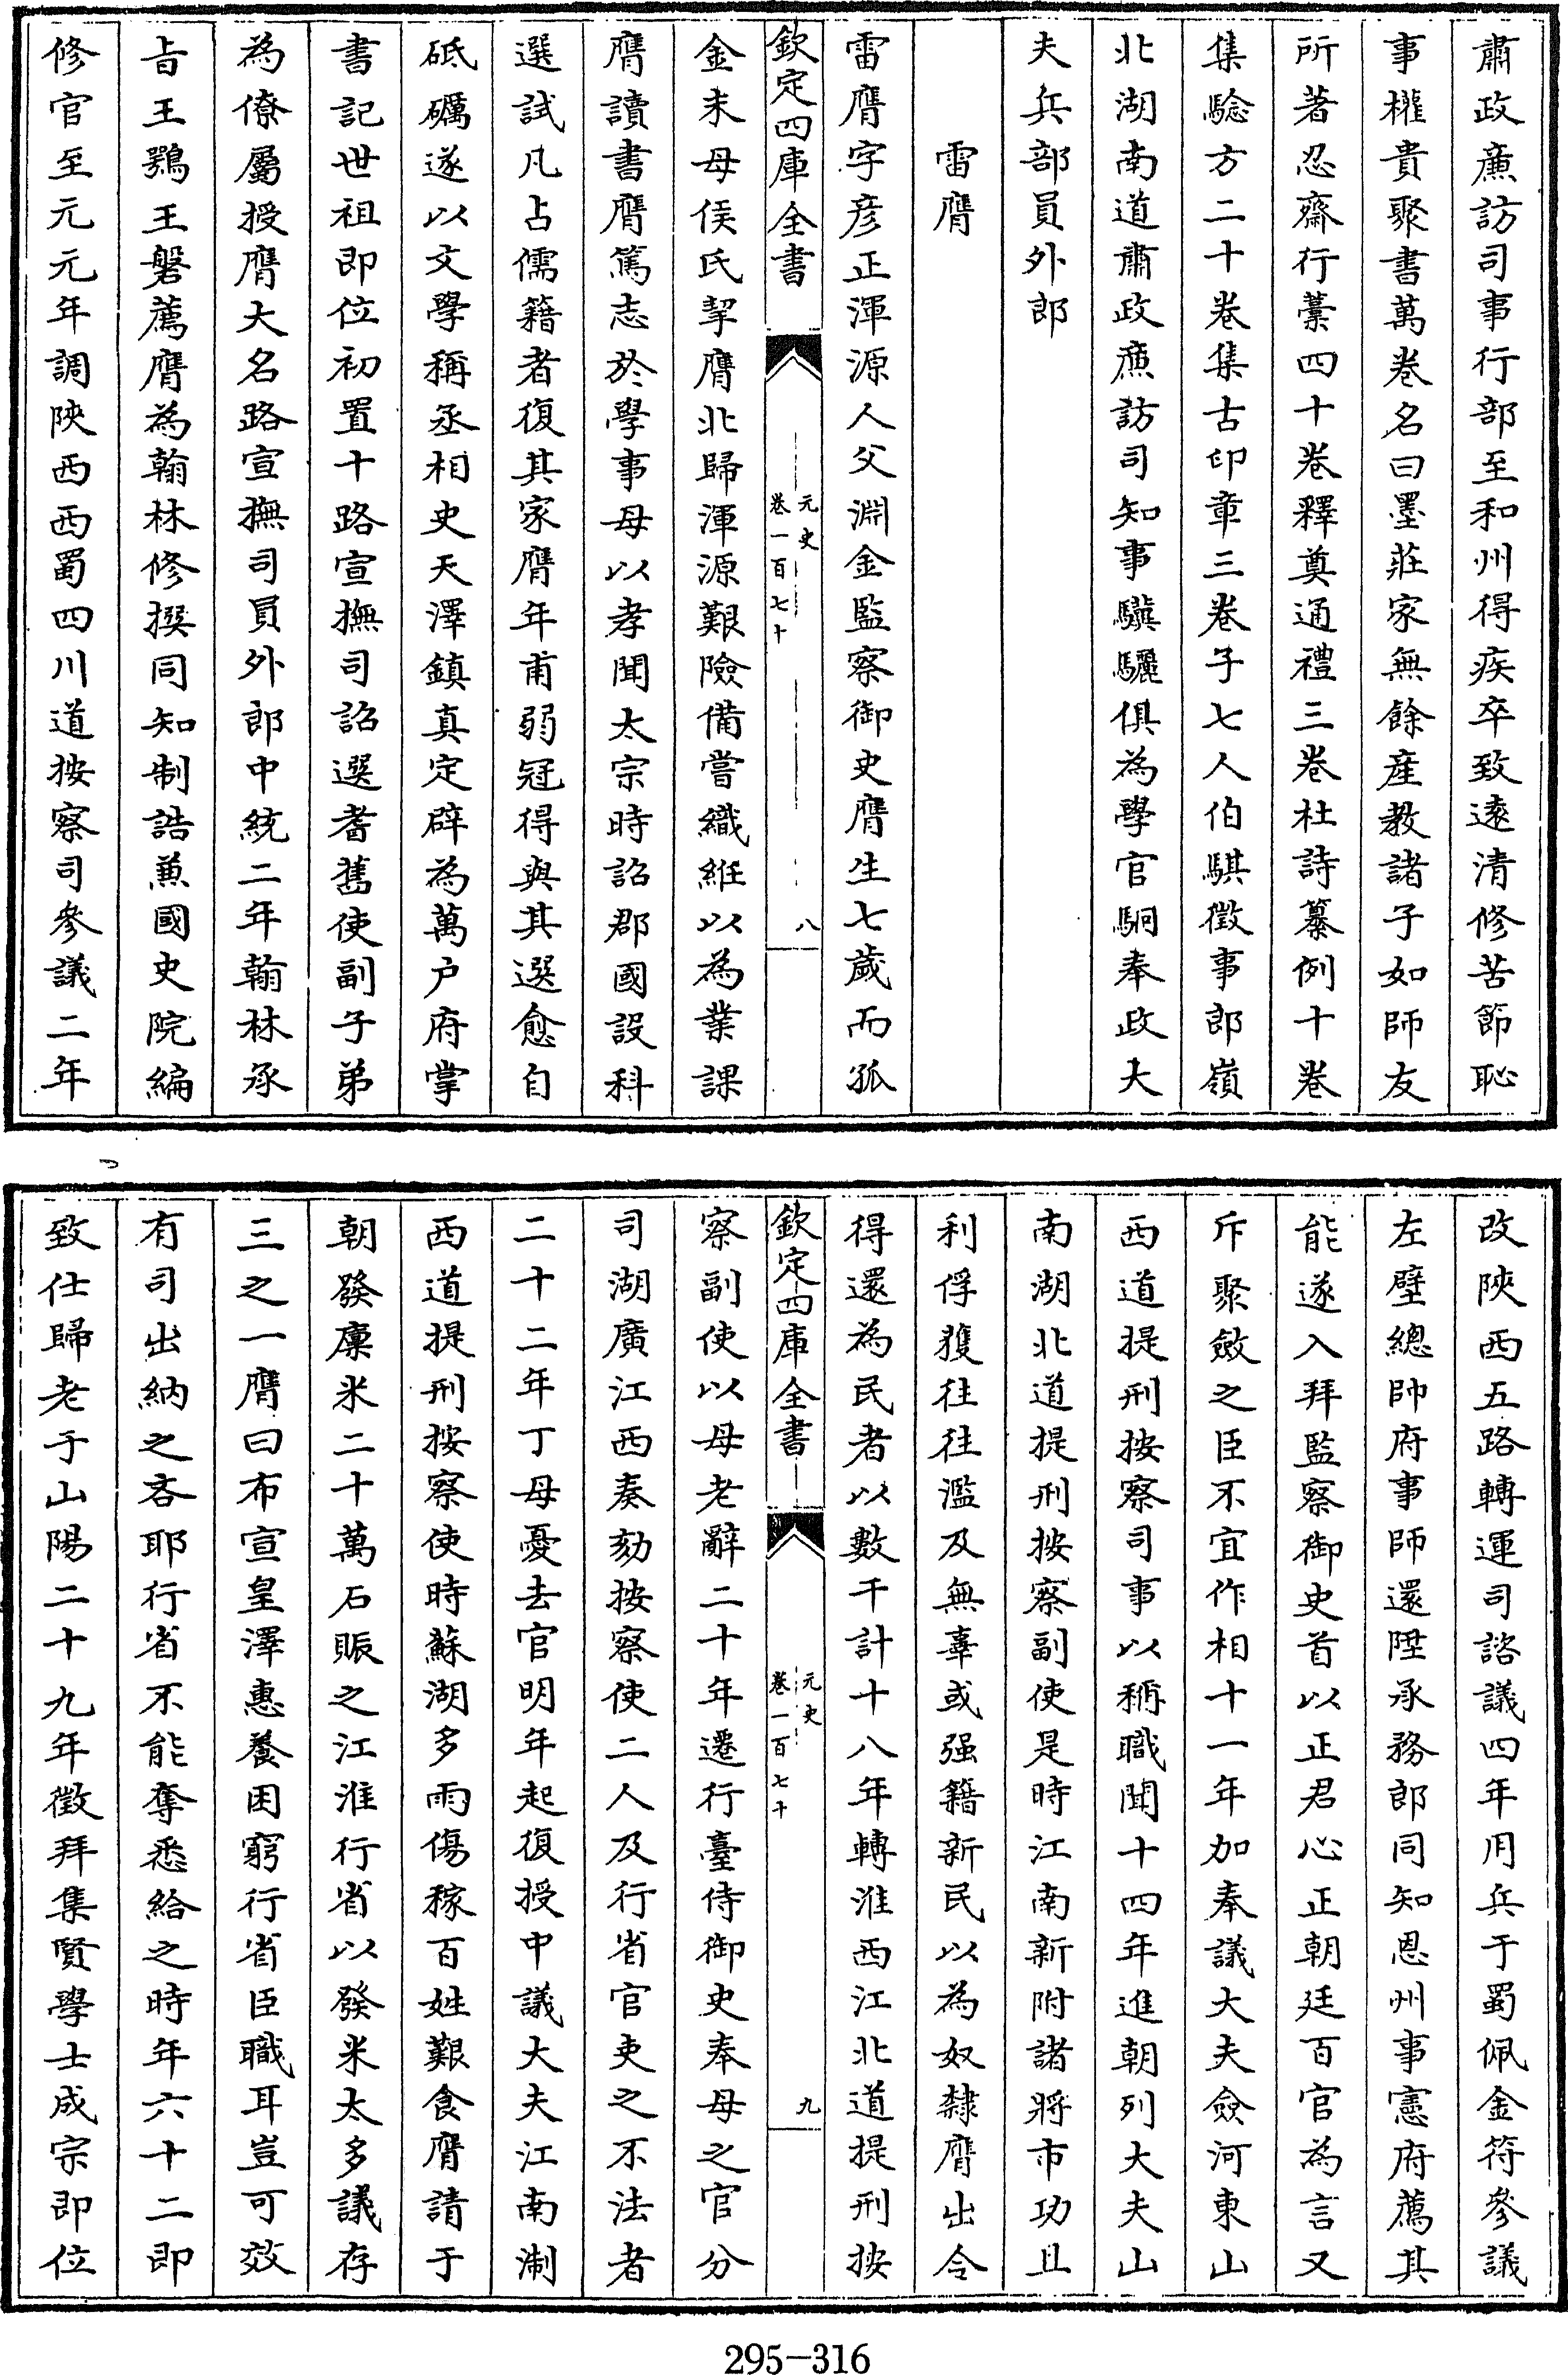 肅政廉訪司事行部至和州得疾卒致逺清修苦節恥
事權貴聚書萬卷名曰墨莊家無餘産教諸子如師友
所著忍齋行藁四十卷釋奠通禮三卷杜詩纂例十卷
集騐方二十卷集古印章三卷子七人伯騏徵事郎嶺
北湖南道肅政廉訪司知事驥驪俱為學官駉奉政大
夫兵部員外郎
雷膺
雷膺字彦正渾源人父淵金監察御史膺生七歲而孤
欽定四庫全書
元史
卷一百七十
八
金末母侯氏挈膺北歸渾源艱險備嘗織絍以為業課
膺讀書膺篤志於學事母以孝聞太宗時詔郡國設科
選試凡占儒籍者復其家膺年甫弱冠得與其選愈自
砥礪遂以文學稱丞相史天澤鎮真定辟為萬户府掌
書記世祖即位初置十路宣撫司詔選耆舊使副子弟
為僚屬授膺大名路宣撫司員外郎中統二年翰林承
㫖王鶚王磐薦膺為翰林修撰同知制誥兼國史院編
修官至元元年調陜西西蜀四川道按察司參議二年
改陜西五路轉運司諮議四年用兵于蜀佩金符參議
左壁總帥府事師還陞承務郎同知恩州事憲府薦其
能遂入拜監察御史首以正君心正朝廷百官為言又
斥聚斂之臣不宜作相十一年加奉議大夫僉河東山
西道提刑按察司事以稱職聞十四年進朝列大夫山
南湖北道提刑按察副使是時江南新附諸將市功且
利俘獲往往濫及無辜或强籍新民以為奴隸膺出令
得還為民者以數千計十八年轉淮西江北道提刑按
欽定四庫全書
元史
卷一百七十
九
察副使以母老辭二十年遷行臺侍御史奉母之官分
司湖廣江西奏劾按察使二人及行省官吏之不法者
二十二年丁母憂去官明年起復授中議大夫江南淛
西道提刑按察使時蘇湖多雨傷稼百姓艱食膺請于
朝發廩米二十萬石賑之江淮行省以發米太多議存
三之一膺曰布宣皇澤惠養困窮行省臣職耳豈可效
有司出納之吝耶行省不能奪悉給之時年六十二即
致仕歸老于山陽二十九年徵拜集賢學士成宗即位
295-316